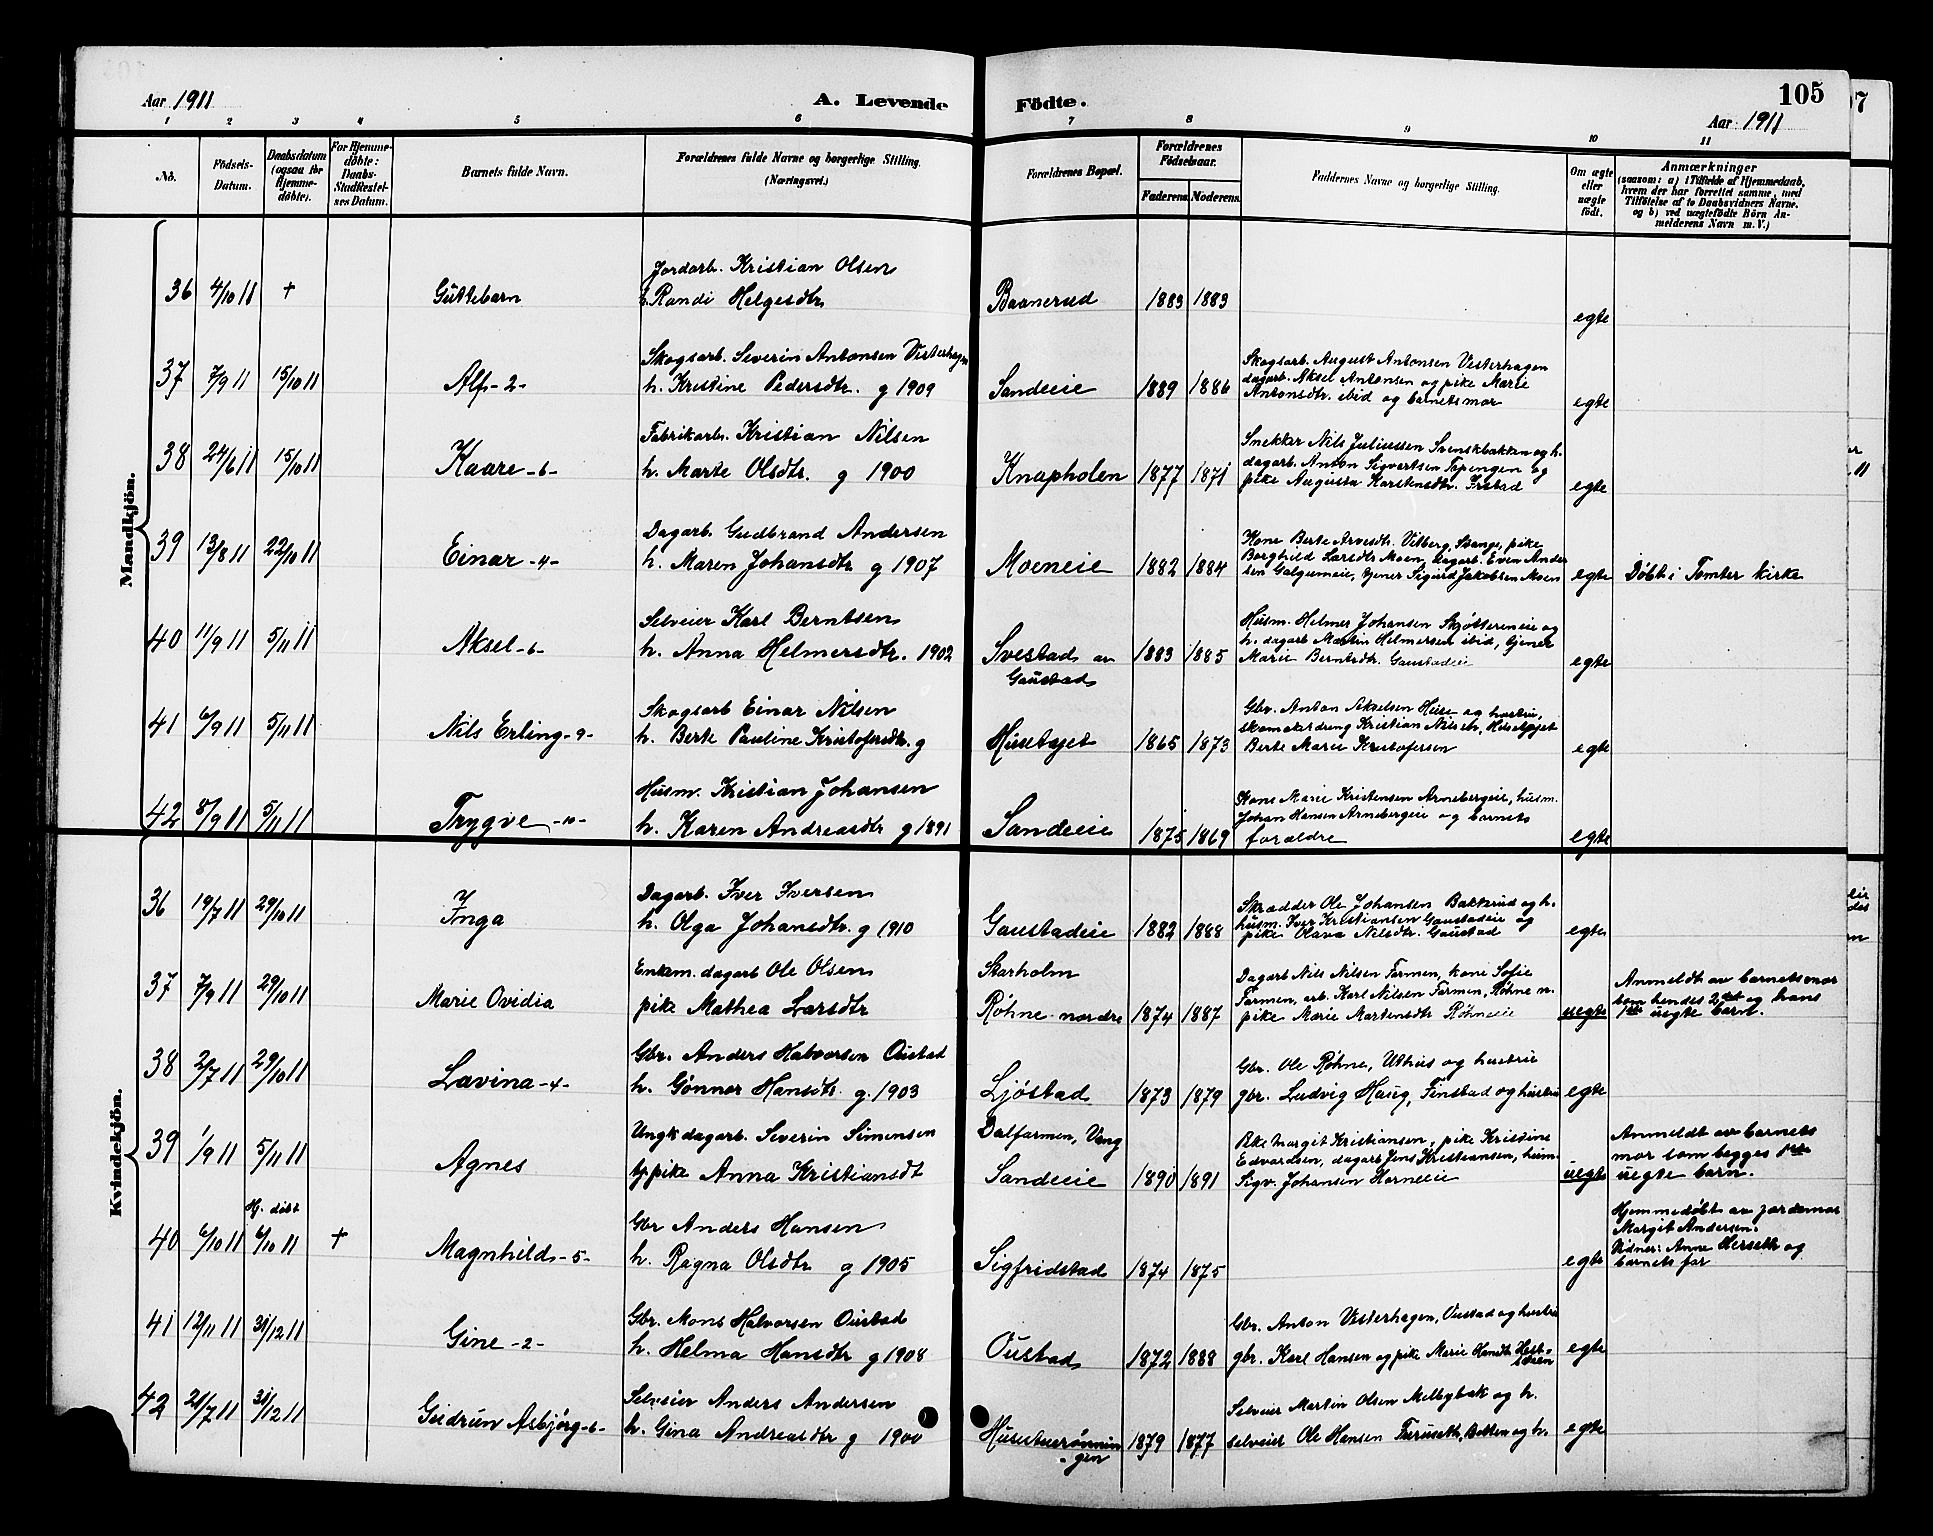 Aar 1911
A. Levende
Födte.
105
Aar 1911
1 2 3 4 5 6 7 8 9 10 11
No.
Födsels-
Datum.
Daabsdatum
(ogsaa for
Hjemme-
döbte).
For Hjemme-
döbte:
Daabs-
Stadfæstel-
ses Datum.
Barnets fulde Navn.
Forældrenes fulde Navne og borgerlige Stilling.
(Næringsvei.)
Forældrenes Bopæl.
Forældrenes
Födselsaar.
Faderens. Moderens.
Faddernes Navne og borgerlige Stilling.
Om ægte
eller
uægte
födt.
Anmærkninger
(saasom: a) i Tilfælde af Hjemmedaab,
hvem der har forrettet samme, med
Tilföielse af to Daabsvidners Navne,
og b) ved uægtefödte Börn An-
melderens Navn m. V.)
Mandkjön.
36 4/10 11 +
Guttebarn
Jordarb. Kristian Olsen
h. Randi Helgesdtr
Baanerud
1883 1883
egte
37 7/9 11 15/10 11
Alf -2-
Skogsarb. Severin Antonsen Vesterhagen
h. Kristine Pedersdtr. g 1909
Sandeeie
1889 1886
Skogsarb. August Antonsen Vesterhagen
dagarb. Aksel Antonsen og pike Marie
Antonsdtr. ibid og barnets mor
egte
38 24/6 11 15/10 11
Kaare -6-
Fabrikarb. Kristian Nilsen
h. Marte Olsdtr. g 1900
Knapholen
1877 1871
Snekker Nils Juliussen Svenskbakken og h.
dagarb. Anton Sigvartsen Tøpengen og
pike Augusta Karstensdtr.
egte
39 13/8 11 22/10 11
Einar -4-
Dagarb. Gudbrand Andersen
h. Maren Johansdtr g 1907
Moeneie
1882 1884
Kone Berte Arvesdtr. Vilberg, pike
Borghild Larsdtr Moen, dagarb. Even Ander
sen Galgumeie, tjener Sigurd Jakobsen Moen
egte
Døbt i Tomter kirke
40 11/9 11 5/11 11
Aksel -6-
Selveier Karl Berntsen
h. Anna Helmersdtr. 1902
Svestad av
Gaustad
1883 1885
Husm. Helmer Johansen Skjøttereneie og
h. dagarb Martin Helmersen ibid, tjener
Marie Berntsdtr. Gaustadeie
egte
41 6/9 11 5/11 11
Nils Erling -9-
Skogsarb Einar Nilsen
h. Berte Pauline Kristofersdtr. g
Husetøjet
1865 1873
Gbr. Anton Akselsen Huse og hustru,
skomakerdreng Kristian Nilsen, Husetøjet
Berte Marie Kristofersen
egte
42 8/9 11 5/11 11
Trygve -10-
Husm. Kristian Johansen
h. Karen Andreasdtr g 1891
Sandeeie
1875 1869
Kone Marie Kristensen Arnebergeie, husm.
Johan Hansen Arnebergeie og barnets
forældre
egte
Kvindekjön.
36 19/7 11 29/10 11
Inga
Dagarb. Iver Iversen
h. Olga Johansdtr. g 1910
Gaustadeie
1882 1888
Skrædder Ole Johansen Bakkerud og h.
husm. Iver Kristiansen Gaustadeie og
pike Olava Nilsdtr. Gaustad
egte
37 7/9 11 29/10 11
Marie Ovidia
Enkem. dagarb Ole Olsen
pike Mathea Larsdtr
Starholm
Røhne nordre
1874 1887
Dagarb Nils Nilsen Farmen, kone Sofie
Farmen, arb. Karl Nilsen Farmen, Røhne n.
pike Marie Martensdtr Røhneeie
uegte
Anmeldt av barnets mor
som hendes 2det og hans
1ste uegte barn.
38 2/7 11 29/10 11
Lovina -4-
Gbr. Anders Halvorsen Oustad
h. Gønner Hansdtr. g. 1903
Ljøstad
1873 1879
Gbr. Ole Røhne, Uthus og hustru
gbr. Ludvig Haug, Finstad og hustru
egte
39 1/9 11 5/11 11
Agnes
Ungk dagarb. Severin Simensen
pike Anna Kristiansdt
Dalfarmen, Vang
Sandeeie
1890 1891
Pike Margit Kristiansen, pike Kristine
Edvardsen, dagarb Jens Kristiansen, husm.
Sigv. Johansen Horneeie
uegte
Anmeldt av barnets
mor som begges 1ste
uegte barn.
40 6/10 11 Hj. døbt 6/10 11 +
Magnhild -5-
Gbr Anders Hansen
h. Ragna Olsdtr g 1905
Sigfridstad
1874 1875
egte
Hjemmedøbt av jordemor
Margit Andersen.
Vidner: Anne Herseth og
barnets far
41 12/11 11 31/12 11
Gine -2-
Gbr. Mons Halvorsen Oustad
h. Helma Hansdtr g 1908
Oustad
1872 1888
Gbr. Anton Vesterhagen, Oustad og hustru
gbr. Karl Hansen og pike Marie Hansdtr
egte
42 21/7 11 31/12 11
Gudrun Asbjørg -6-
Selveier Anders Andersen
h. Gina Andreasdtr g 1900
Husetuerønnin
gen
1879 1877
Selveier Martin Olsen Melbybak og h.
selveier Ole Hansen Furuseth, Bakken og h.
egte